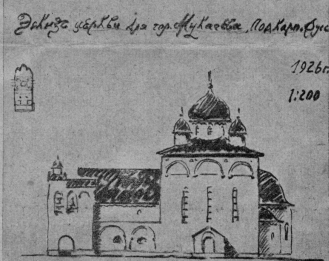 Эскизъ церкви для гор. Мукачева, Подкарп. Русь
1926 г.
1:200